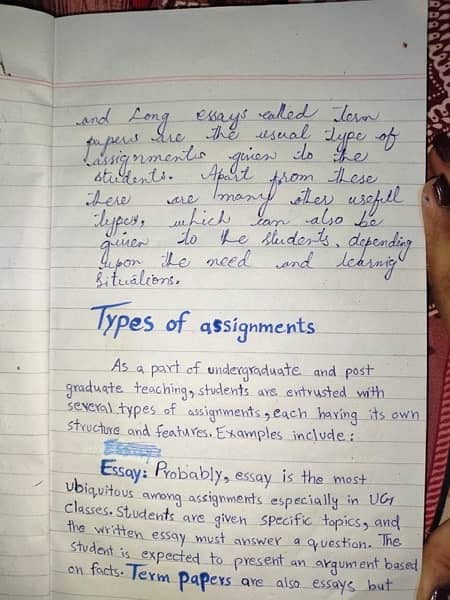 and Long essays called Term
papers are the usual type of
assignments given to the
students. Apart from these
there are many other usefull
types, which can also be
given to the students, depending
upon the need and learnig
Situations.
Types of assignments
As a part of undergraduate and post
graduate teaching, students are entrusted with
several types of assignments, each having its own
structure and features. Examples include:
Essay: Probably, essay is the most
ubiquitous among assignments especially in UG
classes. Students are given specific topics, and
the written essay must answer a question. The
student is expected to present an argument based
on facts. Term papers are also essays but